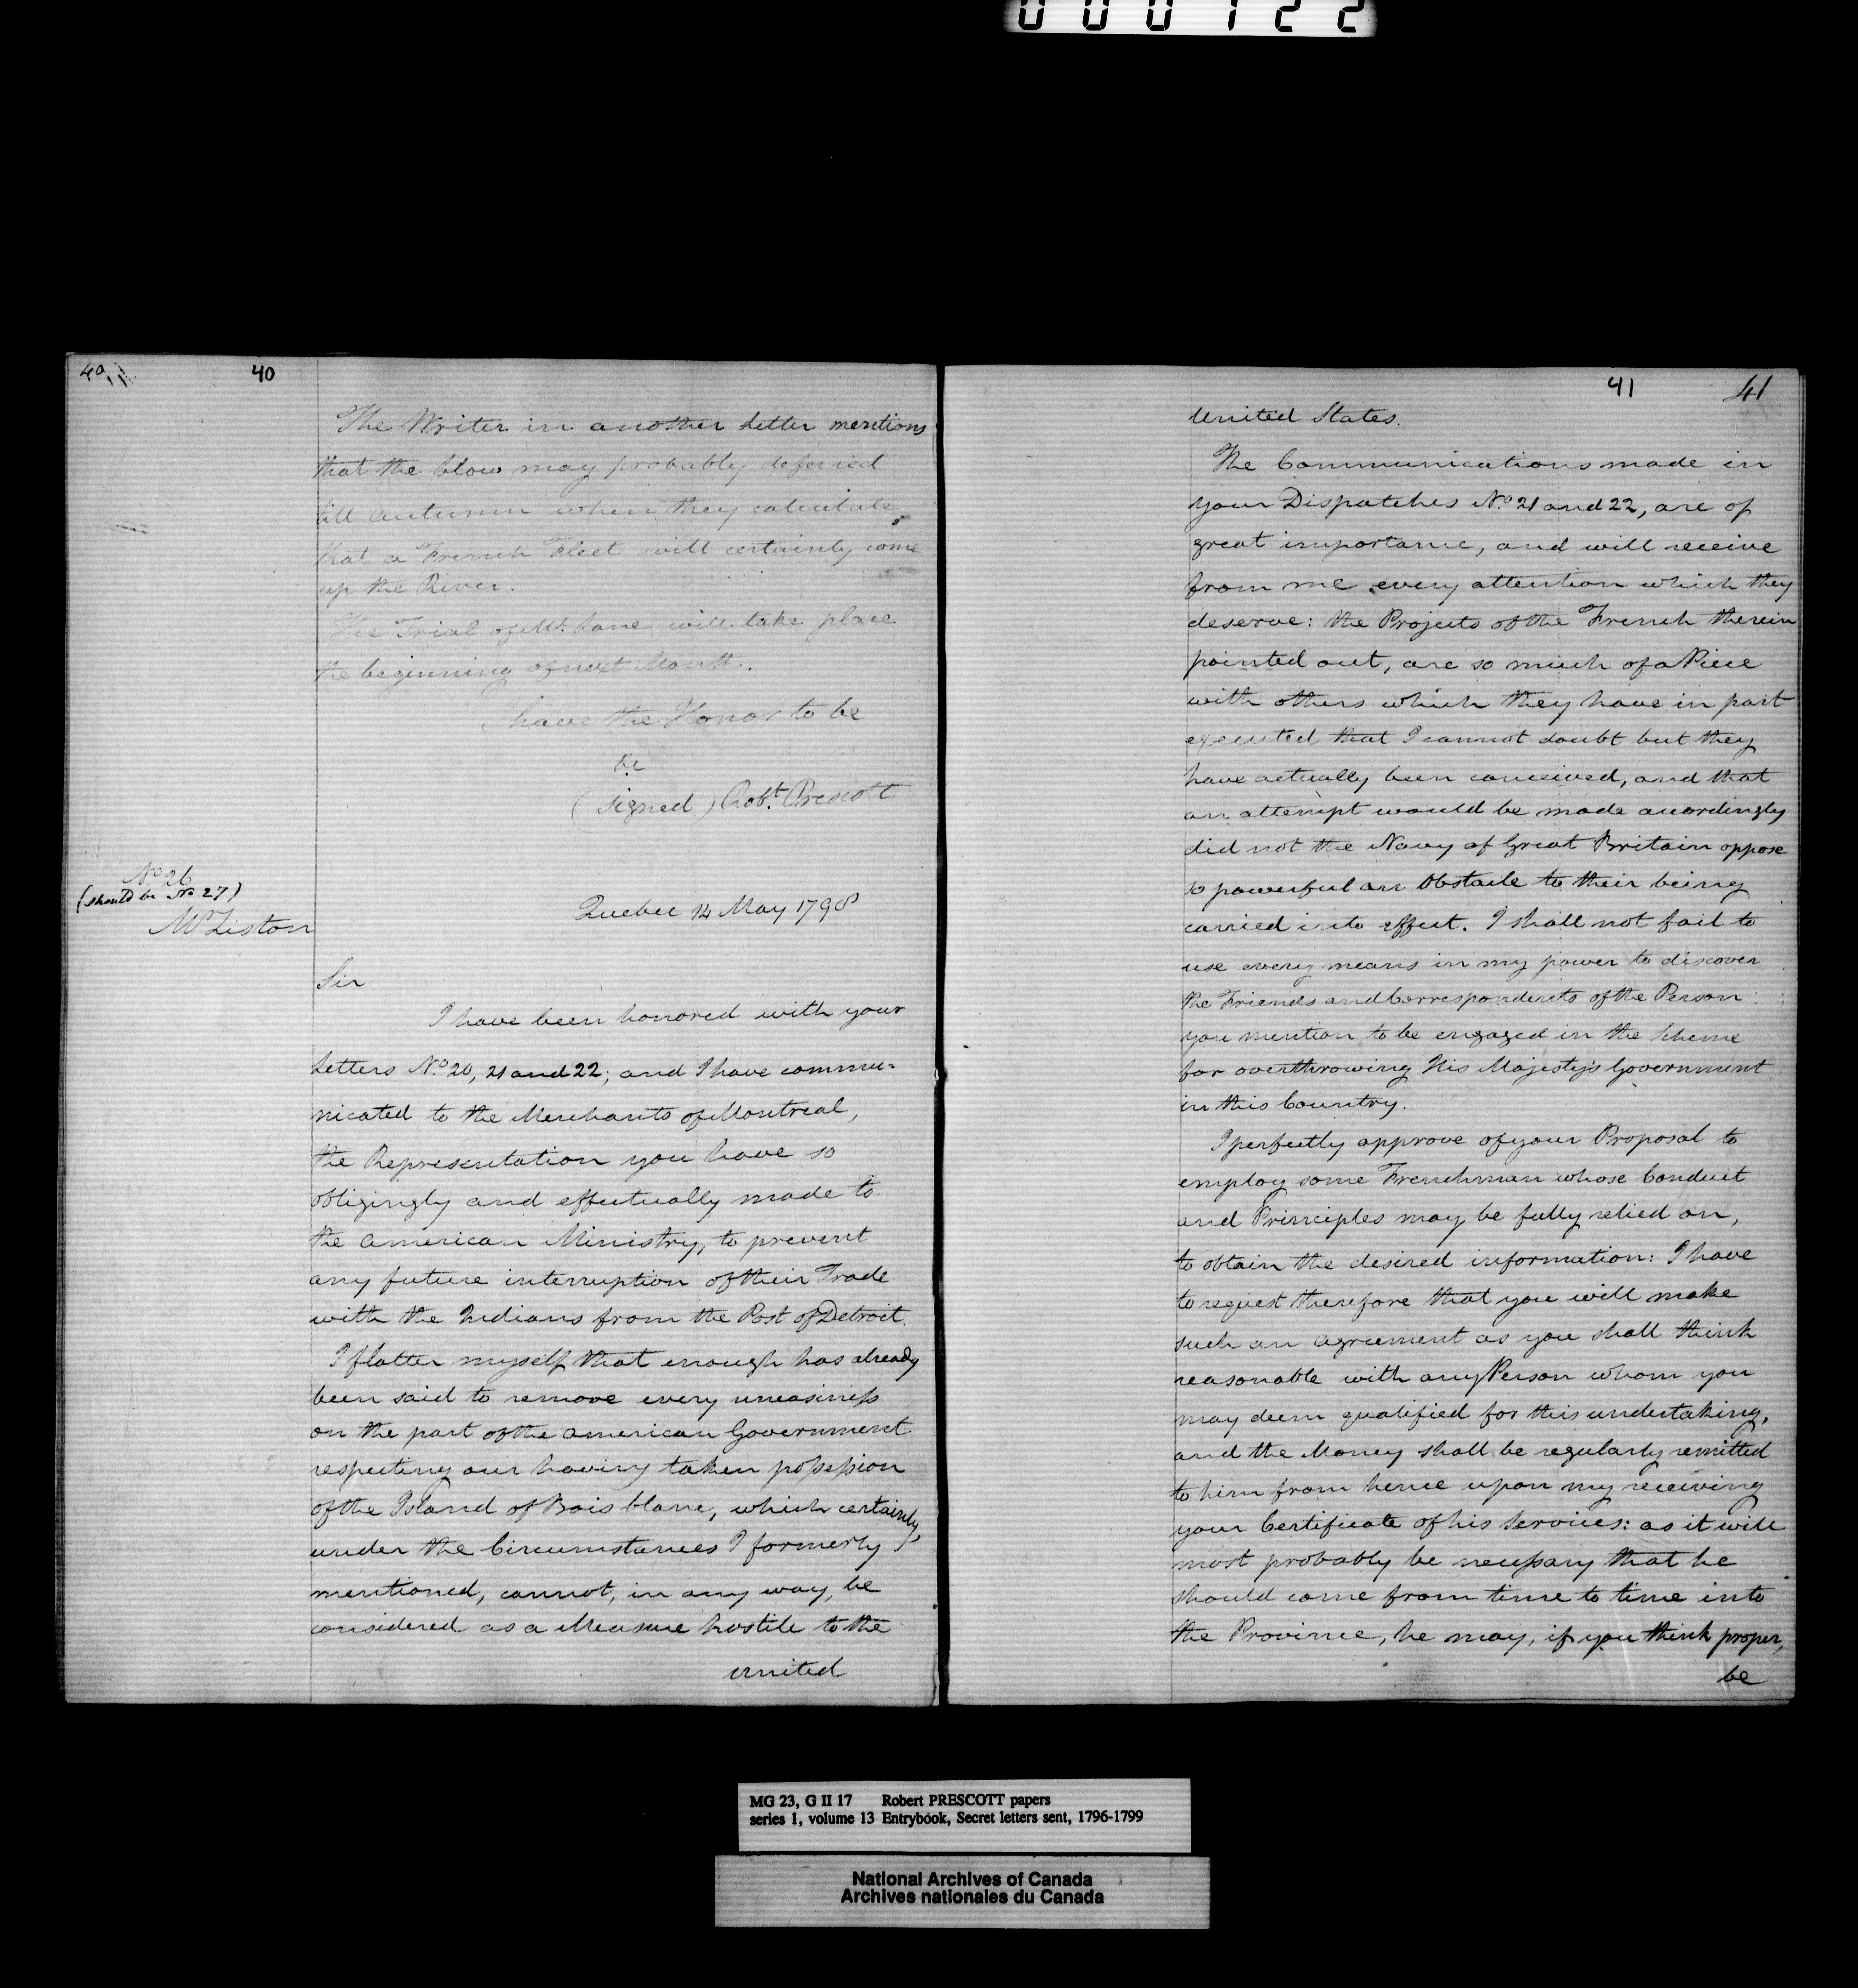 000122
40
40
The Writer in another Letter mentions
that the blow may probably deferred
till Autumn when they calculate
that a French Fleet will certainly come
up the River.
The Trial of Mr. Lane will take place
the beginning of next Month.
I have the Honor to be
&c
(signed) Robt. Prescott
No. 26
(should be No 27)
Mr Liston
Quebec 14 May 1798
Sir
I have been honored with your
Letters No. 20, 21 and 22; and I have commu=
nicated to the Merchants of Montreal,
the Representation you have so
obligingly and effectually made to
the American Ministry, to prevent
any future interruption of their Trade
with the Indians from the Post of Detroit.
I flatter myself that enough has already
been said to remove every uneasiness
on the part of the American Government
respecting our having taken possession
of the Island of Bois blanc, which certainly,
under the Circumstances I formerly
mentioned, cannot, in any way, be
considered as a Measure hostile to the
United
41
41
United States.
The Communications made in
your Dispatches No. 21 and 22, are of
great importance, and will receive
from me every attention which they
deserve: the Projects of the French therein
pointed out, are so much of a Piece
with others which they have in part
executed that I cannot doubt but they
have actually been conceived, and that
an attempt would be made accordingly
did not the Navy of Great Britain oppose
so powerful an Obstacle to their being
carried into effect. I shall not fail to
use every means in my power to discover
the Friends and Correspondents of the Person
you mention to be engaged in the Scheme
for overthrowing His Majesty's Government
in this Country.
I perfectly approve of your Proposal to
employ some Frenchman whose Conduct
and Principles may be fully relied on,
to obtain the desired information: I have
to request therefore that you will make
such an Agreement as you shall think
reasonable with any Person whom you
may deem qualified for this undertaking,
and the Money shall be regularly remitted
to him from hence upon my receiving
your Certificate of his Services: as it will
most probably be necessary that he
should come from time to time into
the Province, he may, if you think proper,
be
MG 23, G II 17 Robert PRESCOTT papers
series 1, volume 13 Entrybook, Secret letters sent, 1796-1799
National Archives of Canada
Archives nationales du Canada